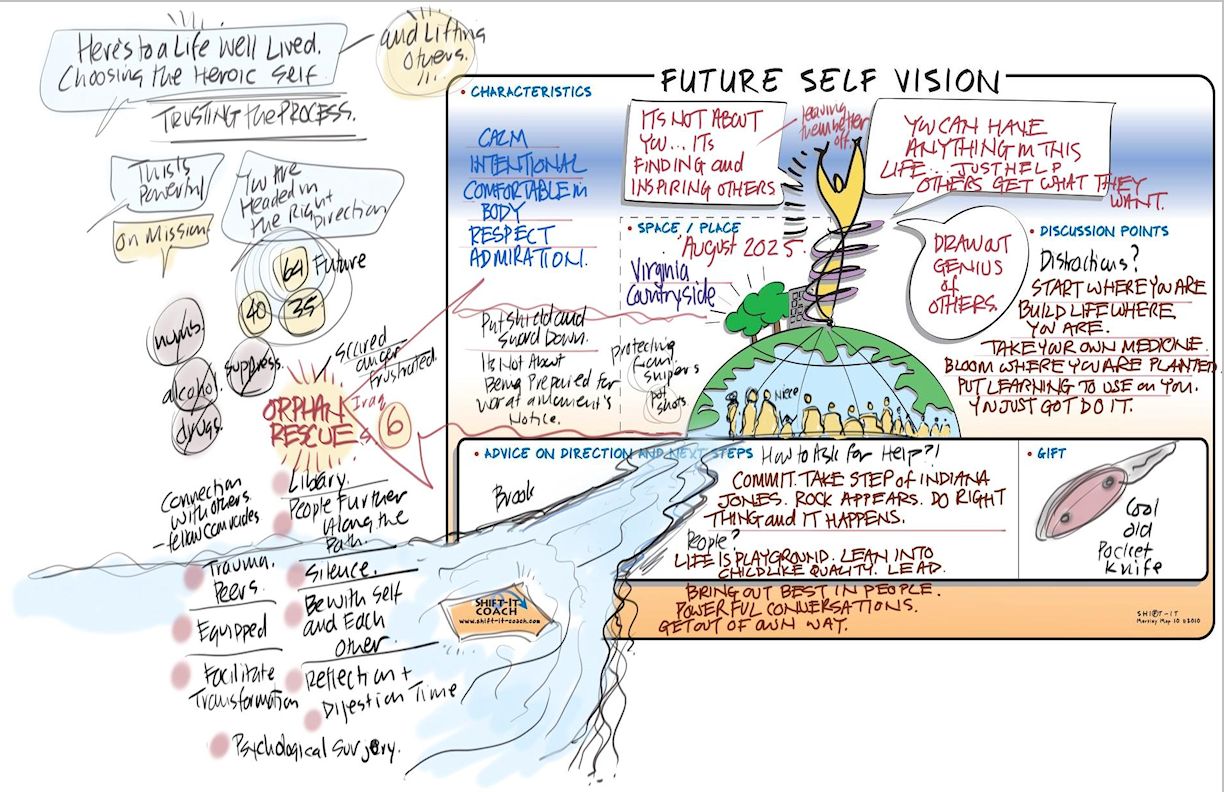 Here's to a Life Well Lived.
Choosing the Heroic Self.
and Lifting
Others.
TRUSTING the PROCESS.
This is
Powerful
You Are
Headed in
the Right
Direction
On Mission
64 Future
40 35
numbs.
suppress.
alcohol.
drugs.
scared
anger
frustrated.
ORPHAN
RESCUE
Iraq
6
Connection
with others.
- fellow comrades
Library.
People Further
Along the
Path.
Trauma.
Peers.
Silence.
Equipped
Be with Self
and Each
Other
Facilitate
Transformation
Reflection +
Digestion Time
Psychological Surgery.
FUTURE SELF VISION
• CHARACTERISTICS
CALM
INTENTIONAL
COMFORTABLE in
BODY
RESPECT
ADMIRATION.
Put Shield and
Sword Down.
It's Not About
Being Prepared for
War at a Moment's
Notice.
ITS NOT ABOUT
YOU... ITS
FINDING and
INSPIRING OTHERS
leaving
them better
off.
YOU CAN HAVE
ANYTHING IN THIS
LIFE... JUST HELP
OTHERS GET WHAT THEY
WANT.
• SPACE / PLACE
August 2025.
Virginia
Countryside
protecting
from
snipers
pot
shots.
Niece
DRAW OUT
GENIUS
of
OTHERS
• DISCUSSION POINTS
Distractions?
START WHERE YOU ARE
BUILD LIFE WHERE
YOU ARE.
TAKE YOUR OWN MEDICINE.
BLOOM WHERE YOU ARE PLANTED
PUT LEARNING TO USE on YOU.
YOU JUST GOT DO IT.
• ADVICE ON DIRECTION AND NEXT STEPS
How to Ask for Help?!
Brook
COMMIT. TAKE STEP of INDIANA
JONES. ROCK APPEARS. DO RIGHT
THING and IT HAPPENS.
People?
LIFE IS PLAYGROUND. LEAN INTO
CHILDLIKE QUALITY. LEAD.
BRING OUT BEST IN PEOPLE.
POWERFUL CONVERSATIONS.
GET OUT OF OWN WAY.
• GIFT
Cool
old
Pocket
Knife
SHIFT-IT
COACH
www.shift-it-coach.com
SHIFT-IT